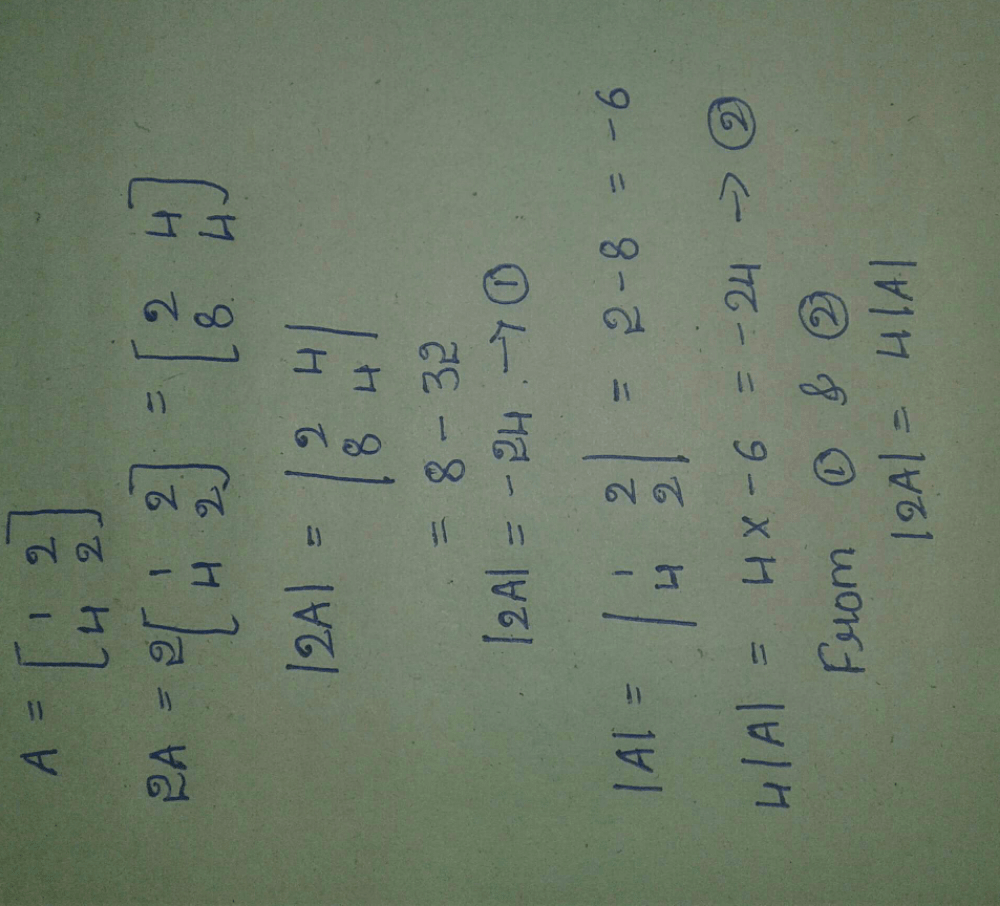 A = [1 2
4 2]
2A = 2[1 2
4 2] = [2 4
8 4]
|2A| = |2 4
8 4|
= 8 - 32
|2A| = -24 → ①
|A| = |1 2
4 2| = 2 - 8 = -6
4|A| = 4 x -6 = -24 → ②
From ① & ②
|2A| = 4|A|